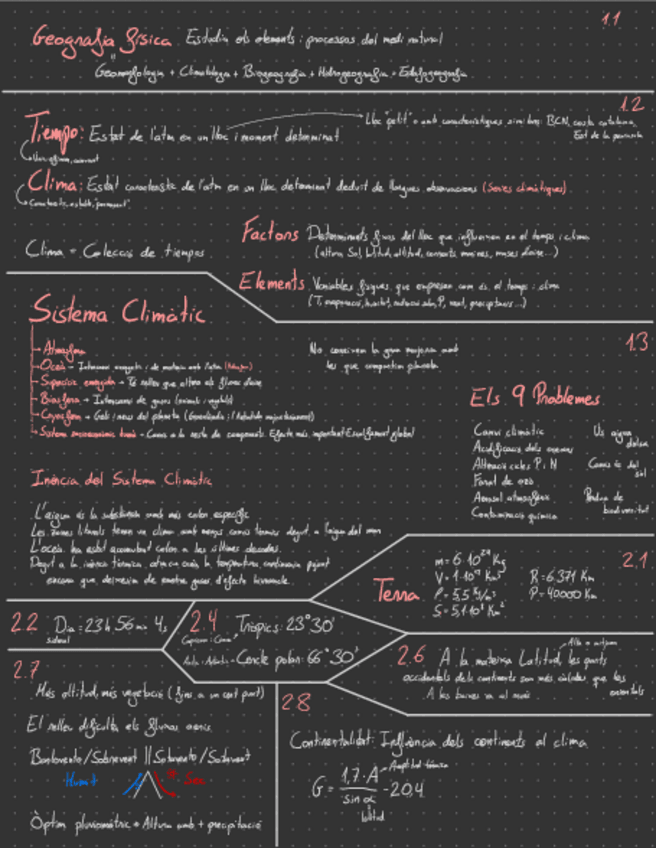 1.1
Geografia física. Estudia els elements i processos del medi natural
Geomorfologia + Climatologia + Biogeografia + Hidrogeografia + Edafogeografia
1.2
Tiempo: Estat de l'atm en un lloc i moment determinat
Lloc "petit" o amb característiques similars: BCN, costa catalana,
Est de la península
Clima: Estat característic de l'atm en un lloc determinat deduït de llargues observacions (Series climàtiques).
Característic, estable, "permanent".
Clima = Colecció de tiempos
Factors Determinants físics del lloc que influeixen en el temps i clima
(altura Sol, latitud, altitud, corrents marines, masses d'aire...)
Elements Variables físiques que expressen com és el temps i clima
(T, evaporació, humitat, radiació solar, P, vent, precipitació...)
Sistema Climàtic
Atmosfera
Oceà → Intercanvi energètic i de matèria amb l'atm
Superfície emergida → Té relleu que altera els fluxos d'aire
Biosfera → Intercanvi de gasos (animals i vegetals)
Criosfera → Gels i neus del planeta (Groenlàndia i l'Antàrtida majoritàriament)
Sistema socioeconòmic humà → Canvia a la resta de components. Efecte més important: Escalfament global
1.3
No coneixem la gran majoria amb
les que compartim planeta
Els 9 Problemes
Canvi climàtic
Acidificació dels oceans
Alteració cicles P i N
Forat de ozó
Aerosol atmosfèric
Contaminació química
Us aigua
dolça
Canvi de
sòl
Pèrdua de
biodiversitat
Inèrcia del Sistema Climàtic
L'aigua és la substància amb més calor específic
Les zones litorals tenen un clima amb menys canvis tèrmics degut a l'aigua del mar
L'oceà ha estat acumulant calor a les últimes dècades.
Degut a la inèrcia tèrmica, la temperatura continuarà pujant
encara que deixessim de emetre gasos d'efecte hivernacle.
2.1
Terra
m = 6·10²⁴ Kg
V = 1·10⁹ Km³
ρ = 5,5 g/cm³
S = 5,1·10⁸ Km²
R = 6371 Km
P = 40000 Km
2.2 Dia = 23h 56min 4s
sideral
2.4 Tròpics: 23°30'
Cercle polar: 66°30'
2.6 A la mateixa Latitud, les parts
occidentals dels continents son més càlides que les
orientals
A les baixes va al revés
2.7
Més altitud, més vegetació (fins a un cert punt)
El relleu dificulta els fluxos aeris
Barlovento/Sobrevent || Sotavento/Sotavent
Humit
Sec
Òptim pluviomètric = Altura amb + precipitació
2.8
Continentalitat: Influència dels continents al clima
Amplitud tèrmica
G = 1,7·A / sin α - 20,4
latitud